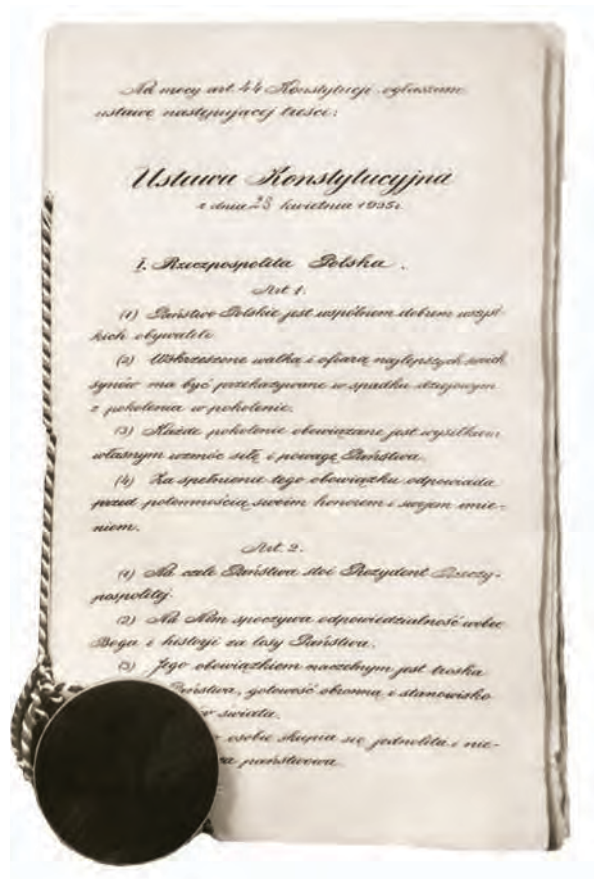 Na mocy art. 44 Konstytucji ogłaszam
ustawę następującej treści:
Ustawa Konstytucyjna
z dnia 23 kwietnia 1935r.
I. Rzeczpospolita Polska.
Art. 1.
(1) Państwo Polskie jest wspólnem dobrem wszyst-
kich obywateli.
(2) Wskrzeszone walką i ofiarą najlepszych swoich
synów ma być przekazywane w spadku dziejowym
z pokolenia w pokolenie.
(3) Każde pokolenie obowiązane jest wysiłkiem
własnym wzmóc siłę i powagę Państwa.
(4) Za spełnienie tego obowiązku odpowiada
przed potomnością swoim honorem i swojem imie-
niem.
Art. 2.
(1) Na czele Państwa stoi Prezydent Rzeczy-
pospolitej.
(2) Na Nim spoczywa odpowiedzialność wobec
Boga i historji za losy Państwa.
(3) Jego obowiązkiem naczelnym jest troska
Państwa, gotowość obronna i stanowisko
świata.
osobie skupia się jednolita i nie-
państwowa.